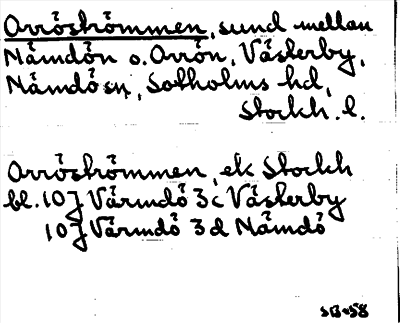 Orröströmmen, sund mellan
Nämdön o. Orrön, Västerby,
Nämdö sn, Sotholms hd,
Stockh. l.
Orröströmmen, ek Stockh
bl. 10J Värmdö 3c Västerby
10J Värmdö 3d Nämdö
SB-58